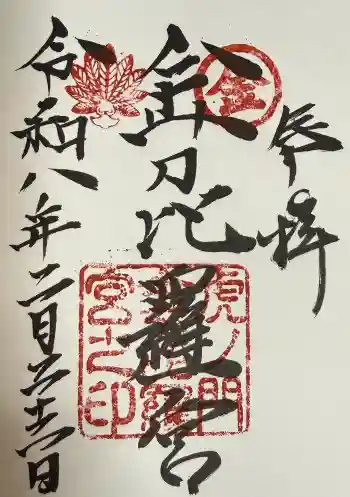 奉拝
金
金刀比羅宮
虎ノ門
宮之印
令和八年二月二十一日